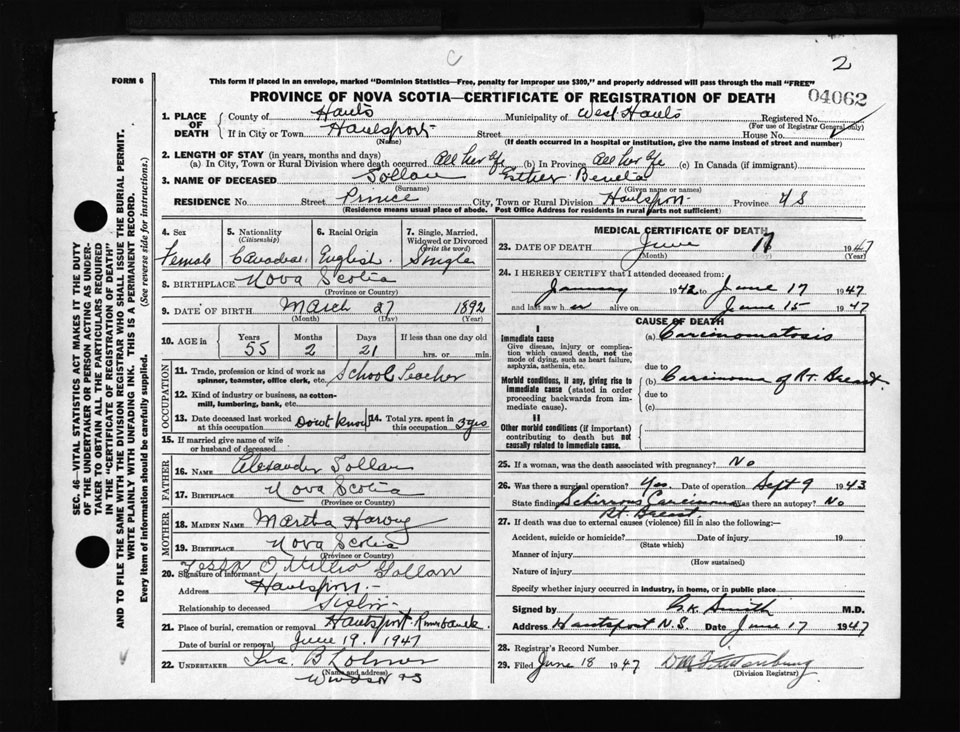 C
2
FORM 6
This form if placed in an envelope, marked "Dominion Statistics—Free, penalty for improper use $300," and properly addressed will pass through the mail "FREE"
PROVINCE OF NOVA SCOTIA—CERTIFICATE OF REGISTRATION OF DEATH
04062
1. PLACE OF DEATH
County of Hants Municipality of West Hants Registered No.
(For use of Registrar General only)
If in City or Town Hantsport Street House No.
(Name) (If death occurred in a hospital or institution, give the name instead of street and number)
2. LENGTH OF STAY (in years, months and days)
(a) In City, Town or Rural Division where death occurred All her life (b) In Province All her life (c) In Canada (if immigrant)
3. NAME OF DECEASED Esther
(Surname) (Given name or names)
RESIDENCE No. Street Prince City, Town or Rural Division Hantsport Province N S
(Residence means usual place of abode. Post Office Address for residents in rural parts not sufficient)
4. Sex Female
5. Nationality (Citizenship) Canadian
6. Racial Origin English
7. Single, Married, Widowed or Divorced (Write the word) Single
8. BIRTHPLACE Nova Scotia
(Province or Country)
9. DATE OF BIRTH March 27 1892
(Month) (Day) (Year)
10. AGE in Years 55 Months 2 Days 21 If less than one day old hrs. or min.
OCCUPATION
11. Trade, profession or kind of work as spinner, teamster, office clerk, etc. School Teacher
12. Kind of industry or business, as cotton-mill, lumbering, bank, etc.
13. Date deceased last worked at this occupation Dont know
14. Total yrs. spent in this occupation 3 yrs
15. If married give name of wife or husband of deceased
FATHER
16. NAME Alexander
17. BIRTHPLACE Nova Scotia
(Province or Country)
MOTHER
18. MAIDEN NAME Martha Harvey
19. BIRTHPLACE Nova Scotia
(Province or Country)
20. Signature of informant
Address Hantsport
Relationship to deceased Sister
21. Place of burial, cremation or removal Hantsport Riverbank
Date of burial or removal June 19, 1947
22. UNDERTAKER
(Name and address)
Windsor NS
MEDICAL CERTIFICATE OF DEATH
23. DATE OF DEATH June 17 1947
(Month) (Day) (Year)
24. I HEREBY CERTIFY that I attended deceased from:
January 1942 to June 17 1947
and last saw h er alive on June 15 1947
CAUSE OF DEATH
I
Immediate cause
Give disease, injury or complication which caused death, not the mode of dying, such as heart failure, asphyxia, asthenia, etc.
(a) Carcinomatosis
due to
Morbid conditions, if any, giving rise to immediate cause (stated in order proceeding backwards from immediate cause).
(b) Carcinoma of Rt. Breast
due to
(c)
II
Other morbid conditions (if important) contributing to death but not causally related to immediate cause.
25. If a woman, was the death associated with pregnancy? No
26. Was there a surgical operation? Yes Date of operation Sept 9 1943
State finding Schirrous Carcinoma Was there an autopsy? No
Rt. Breast
27. If death was due to external causes (violence) fill in also the following:—
Accident, suicide or homicide? Date of injury 19
(State which)
Manner of injury
(How sustained)
Nature of injury
Specify whether injury occurred in industry, in home, or in public place
Signed by Smith M.D.
Address Hantsport N.S. Date June 17 1947
28. Registrar's Record Number
29. Filed June 18 1947
(Division Registrar)
SEC. 46—VITAL STATISTICS ACT MAKES IT THE DUTY
OF THE UNDERTAKER OR PERSON ACTING AS UNDER-
TAKER TO OBTAIN ALL THE PARTICULARS REQUIRED
IN THE "CERTIFICATE OF REGISTRATION OF DEATH"
AND TO FILE THE SAME WITH THE DIVISION REGISTRAR WHO SHALL ISSUE THE BURIAL PERMIT.
WRITE PLAINLY WITH UNFADING INK. THIS IS A PERMANENT RECORD.
Every item of information should be carefully supplied. (See reverse side for instructions.)